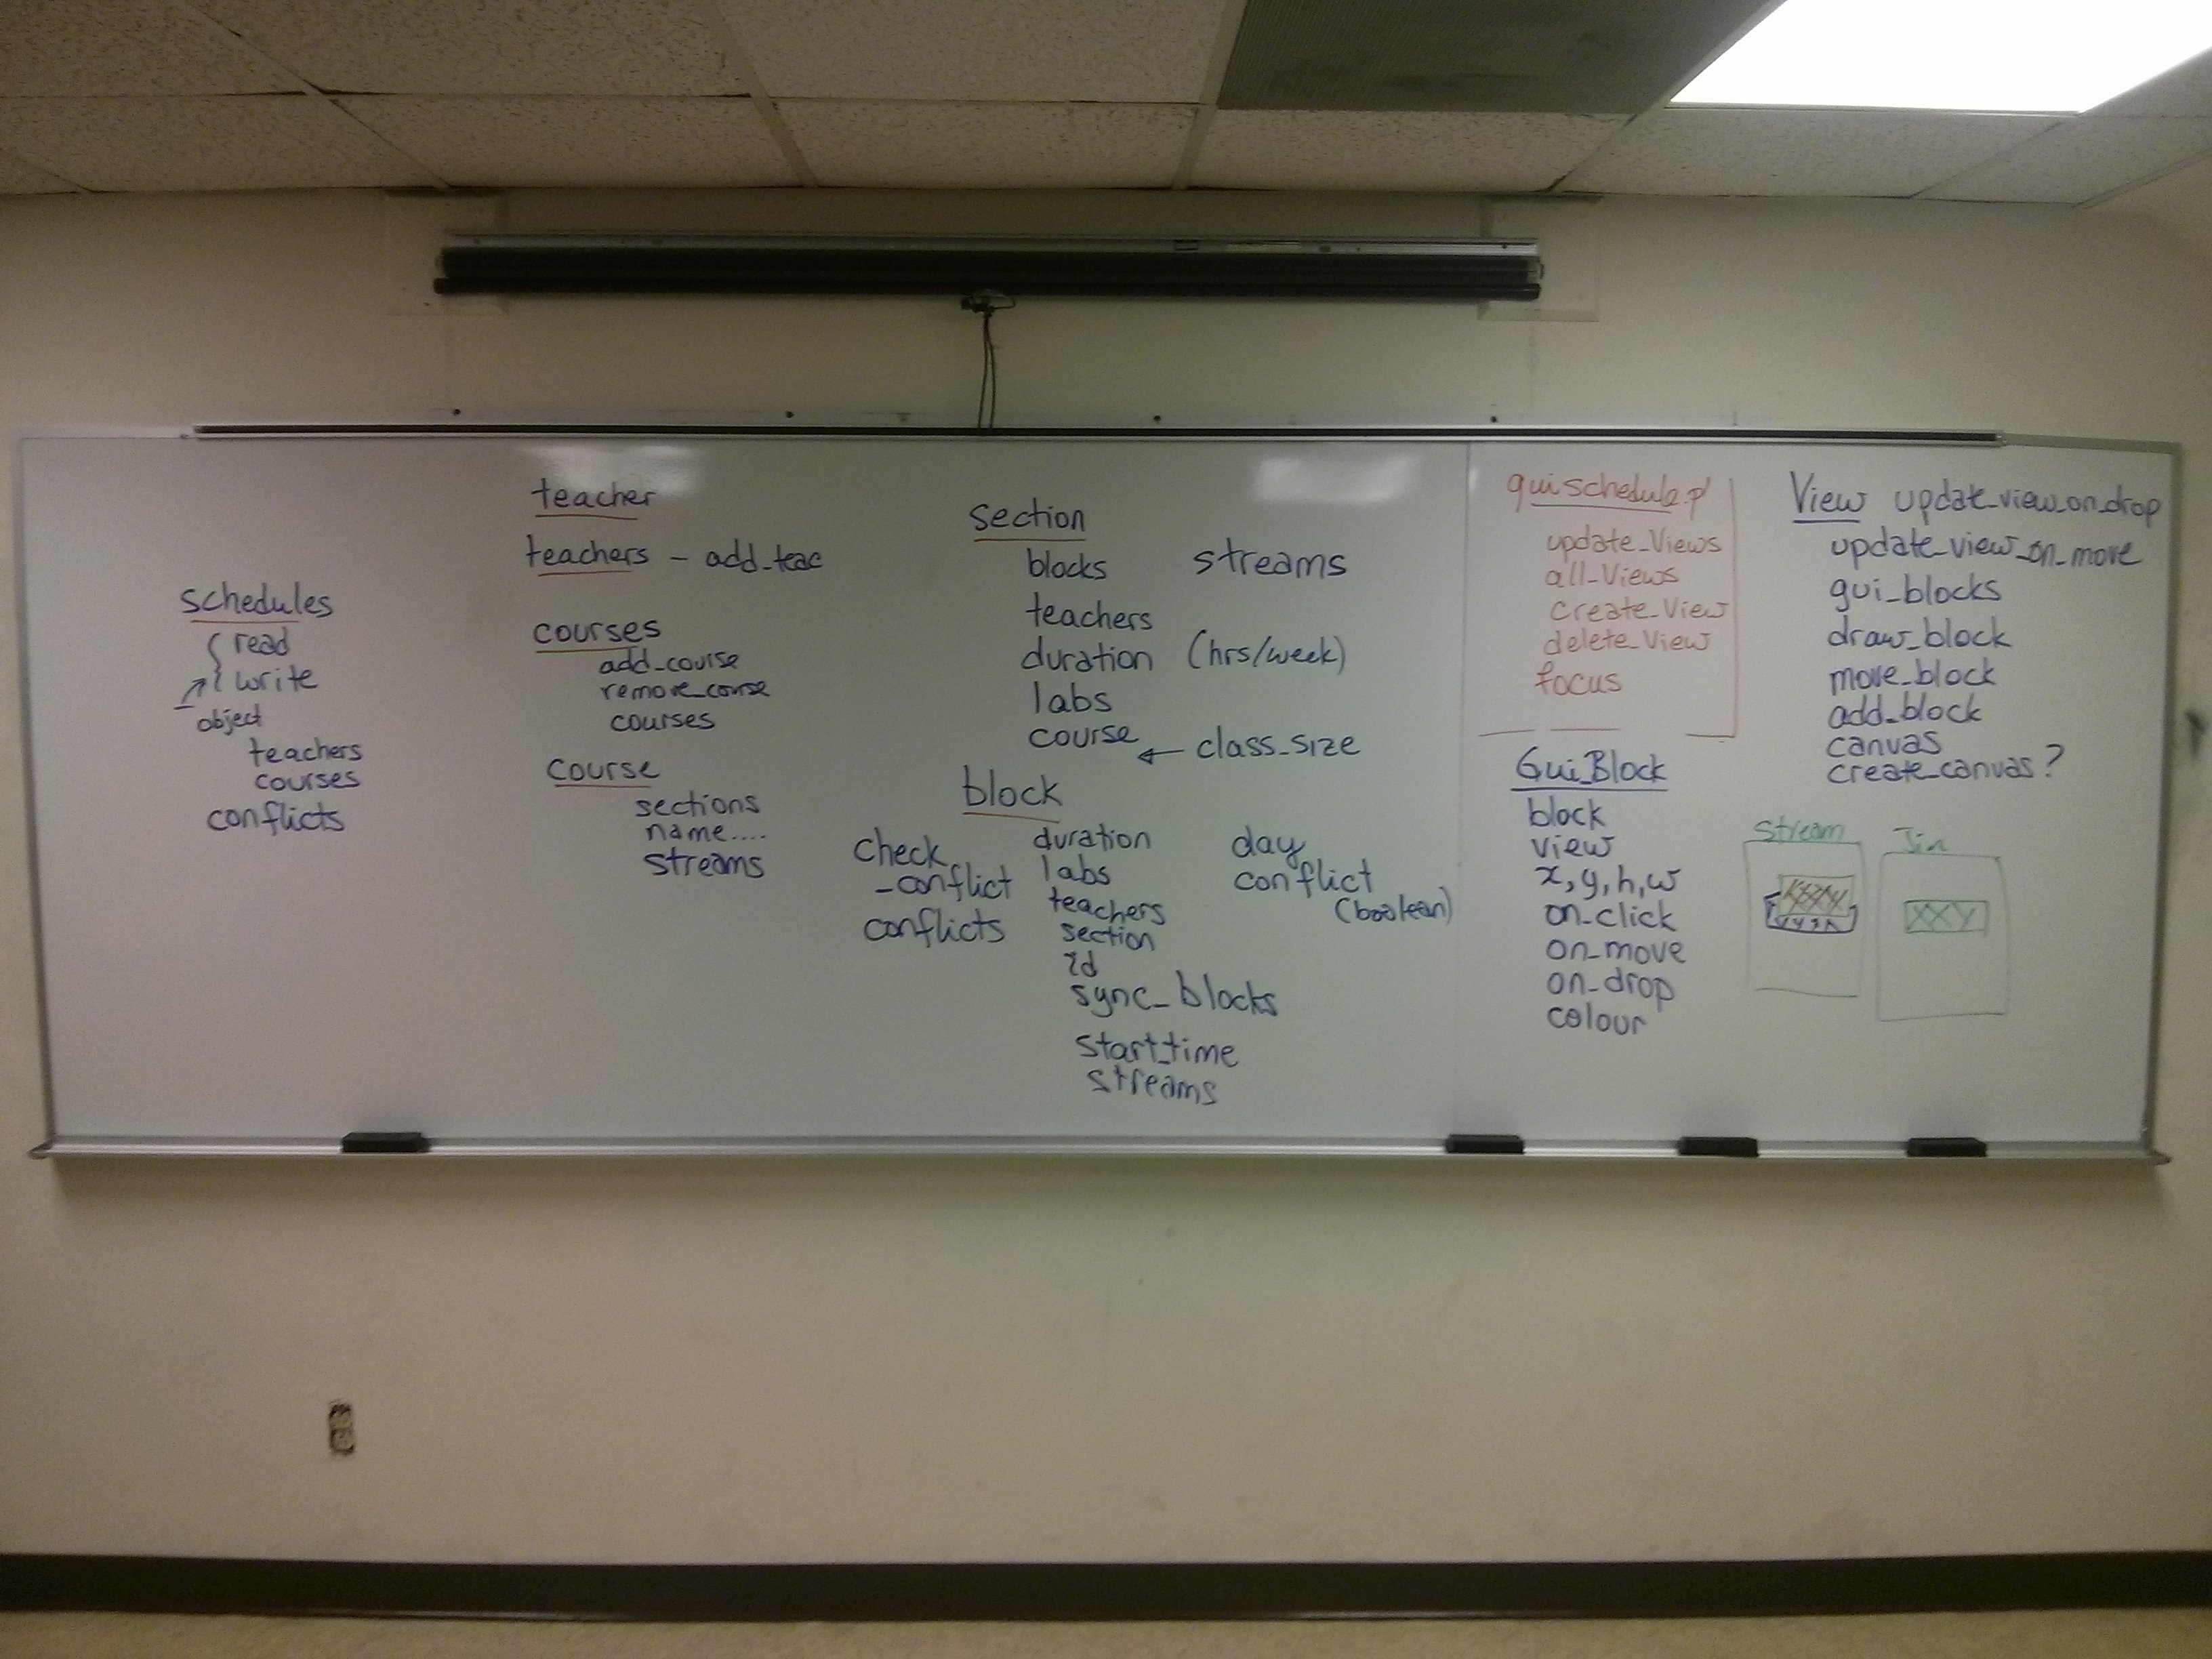 schedules
read
write
object
teachers
courses
conflicts
teacher
teachers - add_teac
courses
add_course
remove_course
courses
course
sections
name....
streams
section
blocks streams
teachers
duration (hrs/week)
labs
course ← class_size
block
check
_conflict
conflicts
duration
labs
teachers
section
id
sync_blocks
start_time
streams
day
conflict
(boolean)
guischedule.pl
update_Views
all_Views
create_View
delete_View
focus
Gui_Block
block
view
x, y, h, w
on_click
on_move
on_drop
colour
View update_view_on_drop
update_view_on_move
gui_blocks
draw_block
move_block
add_block
canvas
create_canvas?
Stream